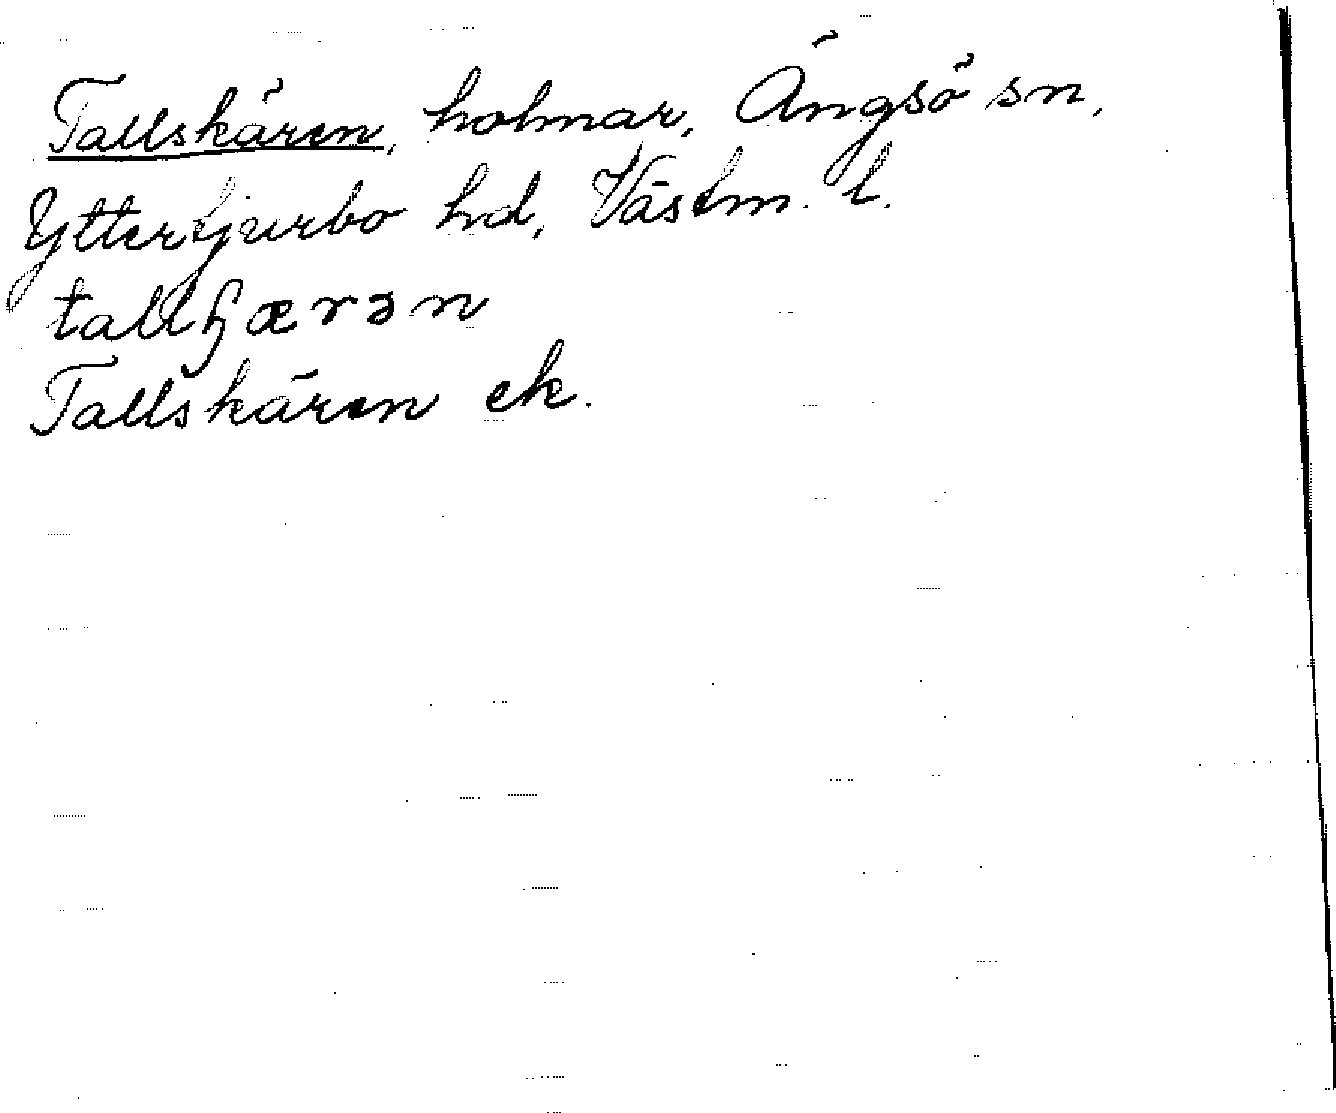 Tallskären, holmar, Ängsö sn,
Yttertjurbo hd, Västm. l.
tallɧærən
Tallskären ek.